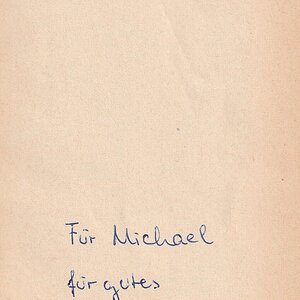 Für Michael
für gutes